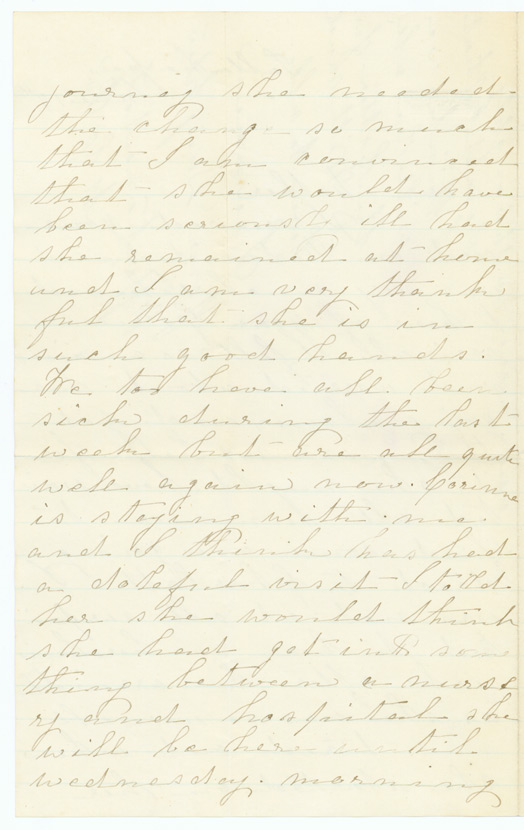 journey she needed
the change so much
that I am convinced
that she would have
been seriously ill had
she remained at home
and I am very thank
ful that she is in
such good hands.
We too have all been
sick during the last
week but are all quite
well again now. Corinne
is staying with me.
and I think has had
a doleful visit I told
her she would think
she had got into some
thing between a nurse
ry and hospital she
will be here until
wednesday. morning